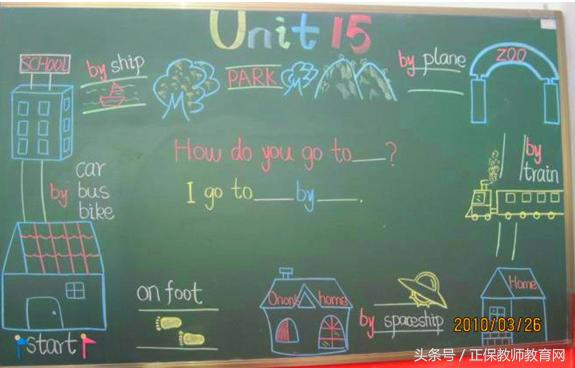 Unit 15
SCHOOL
by ship
PARK
by plane
ZOO
How do you go to___?
I go to___by___.
by car
bus
bike
by train
on foot
home
Home
by spaceship
start
2010/03/26
头条号/正保教师教育网